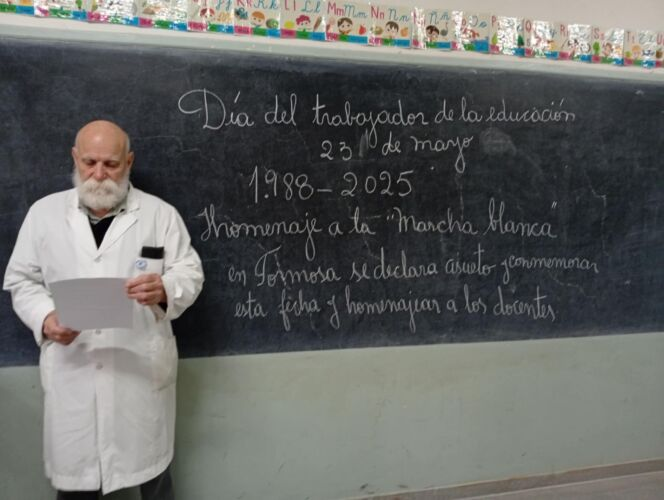 K k L l L l M m M m N n N n Ñ ñ
Día del trabajador de la educación
23 de mayo
1.988 - 2025
Homenaje a la "Marcha blanca"
en Formosa se declara asueto y conmemorar
esta fecha y homenajear a los docentes.